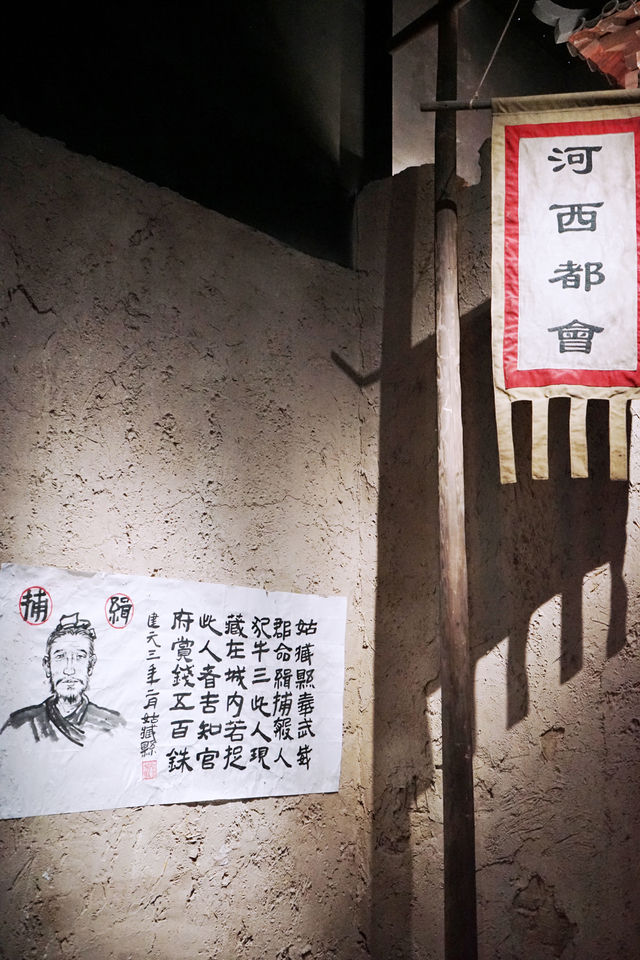 河西都會
姑臧縣奉武威
郡命緝捕殺人
犯牛三此人現
藏在城内若捉
此人者告知官
府賞錢五百銖
建元三年二月姑臧縣
緝捕